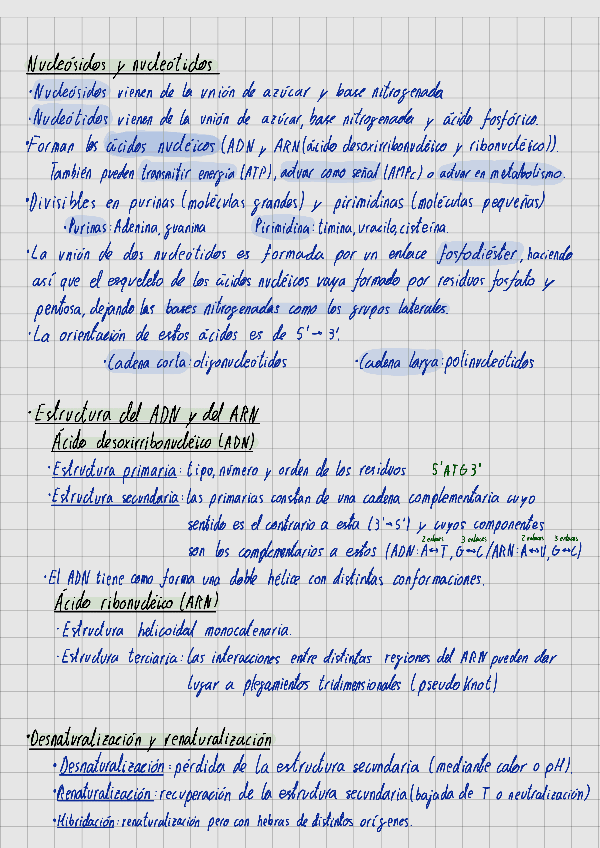 Nucleósidos y nucleótidos
·Nucleósidos vienen de la unión de azúcar y base nitrogenada
·Nucleótidos vienen de la unión de azúcar, base nitrogenada y ácido fosfórico.
·Forman los ácidos nucléicos (ADN y ARN(ácido desoxirribonucléico y ribonucléico)).
También pueden transmitir energía (ATP), actuar como señal (AMPc) o actuar en metabolismo.
·Divisibles en purinas (moléculas grandes) y pirimidinas (moléculas pequeñas)
·Purinas: Adenina, guanina Pirimidina: timina, uracilo, cisteína.
·La unión de dos nucleótidos es formada por un enlace fosfodiéster, haciendo
así que el esqueleto de los ácidos nucléicos vaya formado por residuos fosfato y
pentosa, dejando las bases nitrogenadas como los grupos laterales.
·La orientación de estos ácidos es de 5'→3'.
·Cadena corta: oligonucleótidos ·Cadena larga: polinucleótidos
·Estructura del ADN y del ARN
Ácido desoxirribonucléico (ADN)
·Estructura primaria: tipo, número y orden de los residuos 5'ATG3'
·Estructura secundaria: las primarias constan de una cadena complementaria cuyo
sentido es el contrario a esta (3'→5') y cuyos componentes
2 enlaces 3 enlaces 2 enlaces 3 enlaces
son los complementarios a estos (ADN: A↔T, G↔C/ARN: A↔U, G↔C)
·El ADN tiene como forma una doble hélice con distintas conformaciones.
Ácido ribonucléico (ARN)
·Estructura helicoidal monocatenaria.
·Estructura terciaria: las interacciones entre distintas regiones del ARN pueden dar
lugar a plegamientos tridimensionales (pseudoKnot)
·Desnaturalización y renaturalización
·Desnaturalización: pérdida de la estructura secundaria (mediante calor o pH).
·Renaturalización: recuperación de la estructura secundaria (bajada de T o neutralización)
·Hibridación: renaturalización pero con hebras de distintos orígenes.